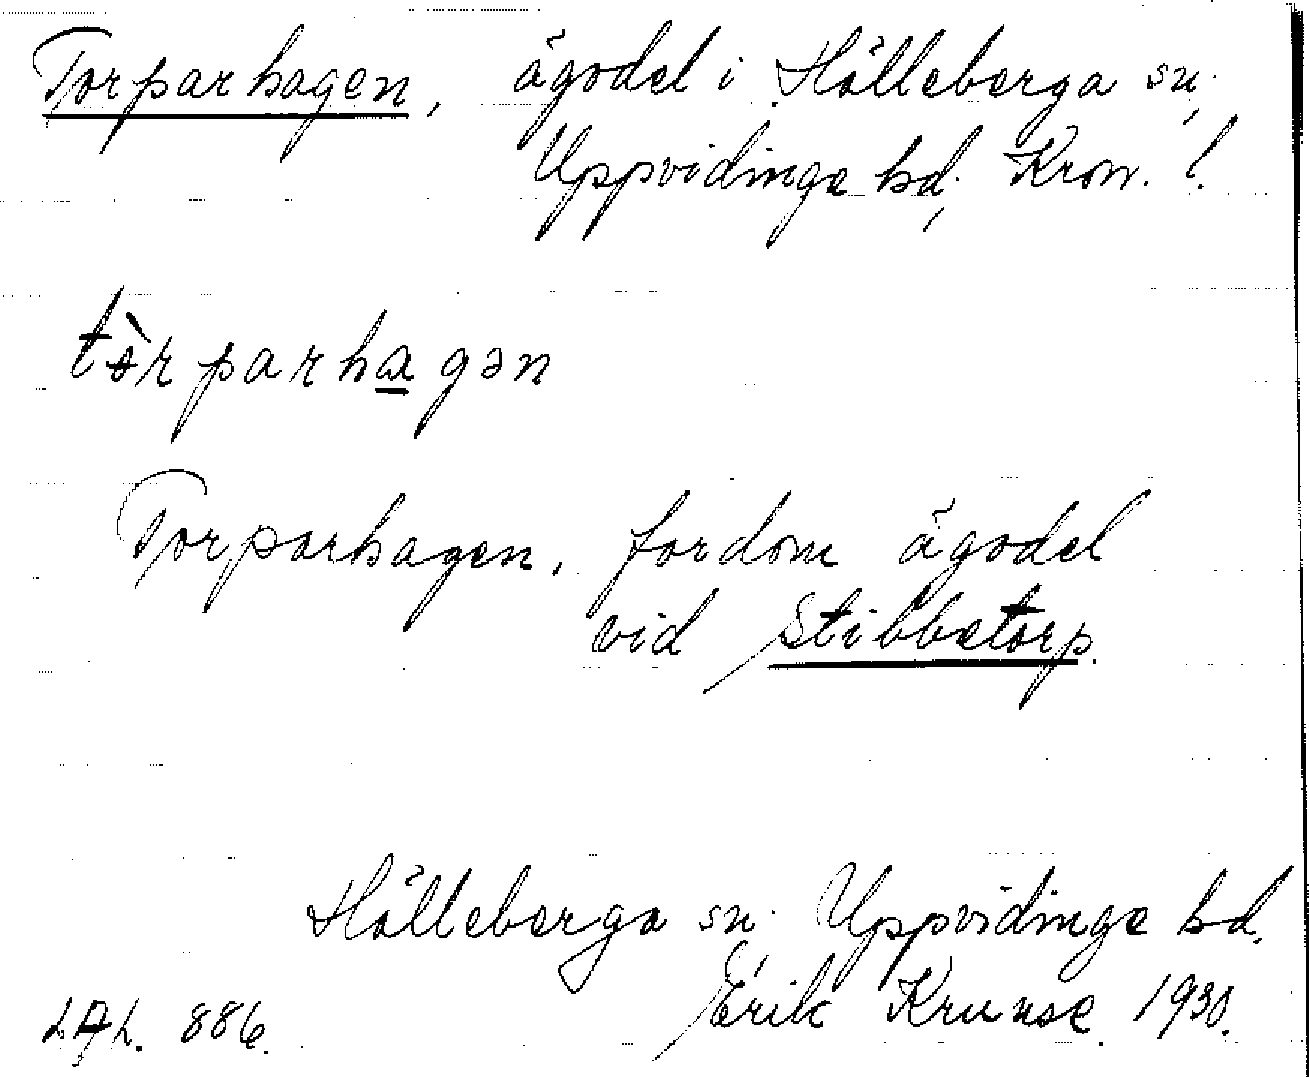 Torparhagen, ägodel i Hälleberga sn;
Uppvidinge hd; Kron. l.
tòrparhagən
Torparhagen, fordom ägodel
vid Stibbetorp.
Hälleberga sn; Uppvidinge hd,
LAL. 886. Erik Krunse. 1930.